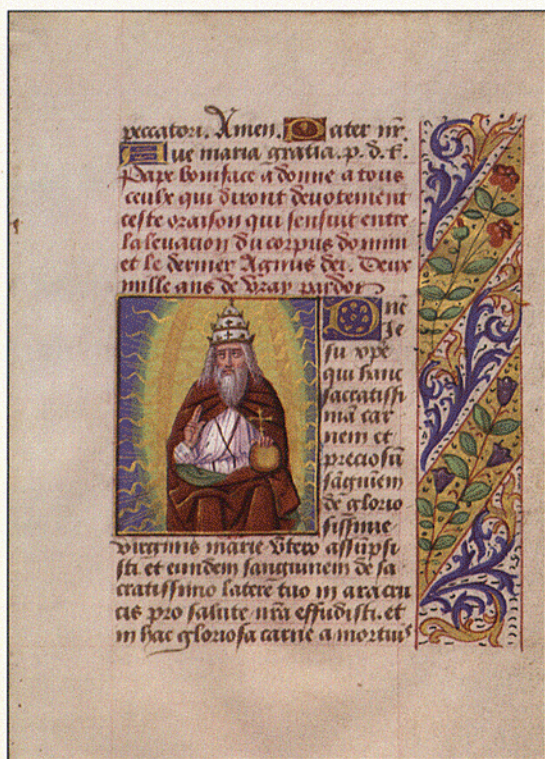 peccatori. Amen. Pater nr̃.
Aue maria gratia. p. d. t.
Pape boniface a donne a tous
ceulx qui diront deuotement
ceste oraison qui sensuit entre
la leuation du corpus domini
et le dernier Agnus dei. Deux
mille ans de vray pardon
Dñe
Je
su xp̃e
qui hanc
sacratissi
mã car
nem et
preciosũ
sãguinem
de glorio
sissime
virginis marie vtero assũpsi
sti et eundem sanguinem de sa
cratissimo latere tuo in ara cru
cis pro salute nr̃a effudisti. et
in hac gloriosa carne a mortuis